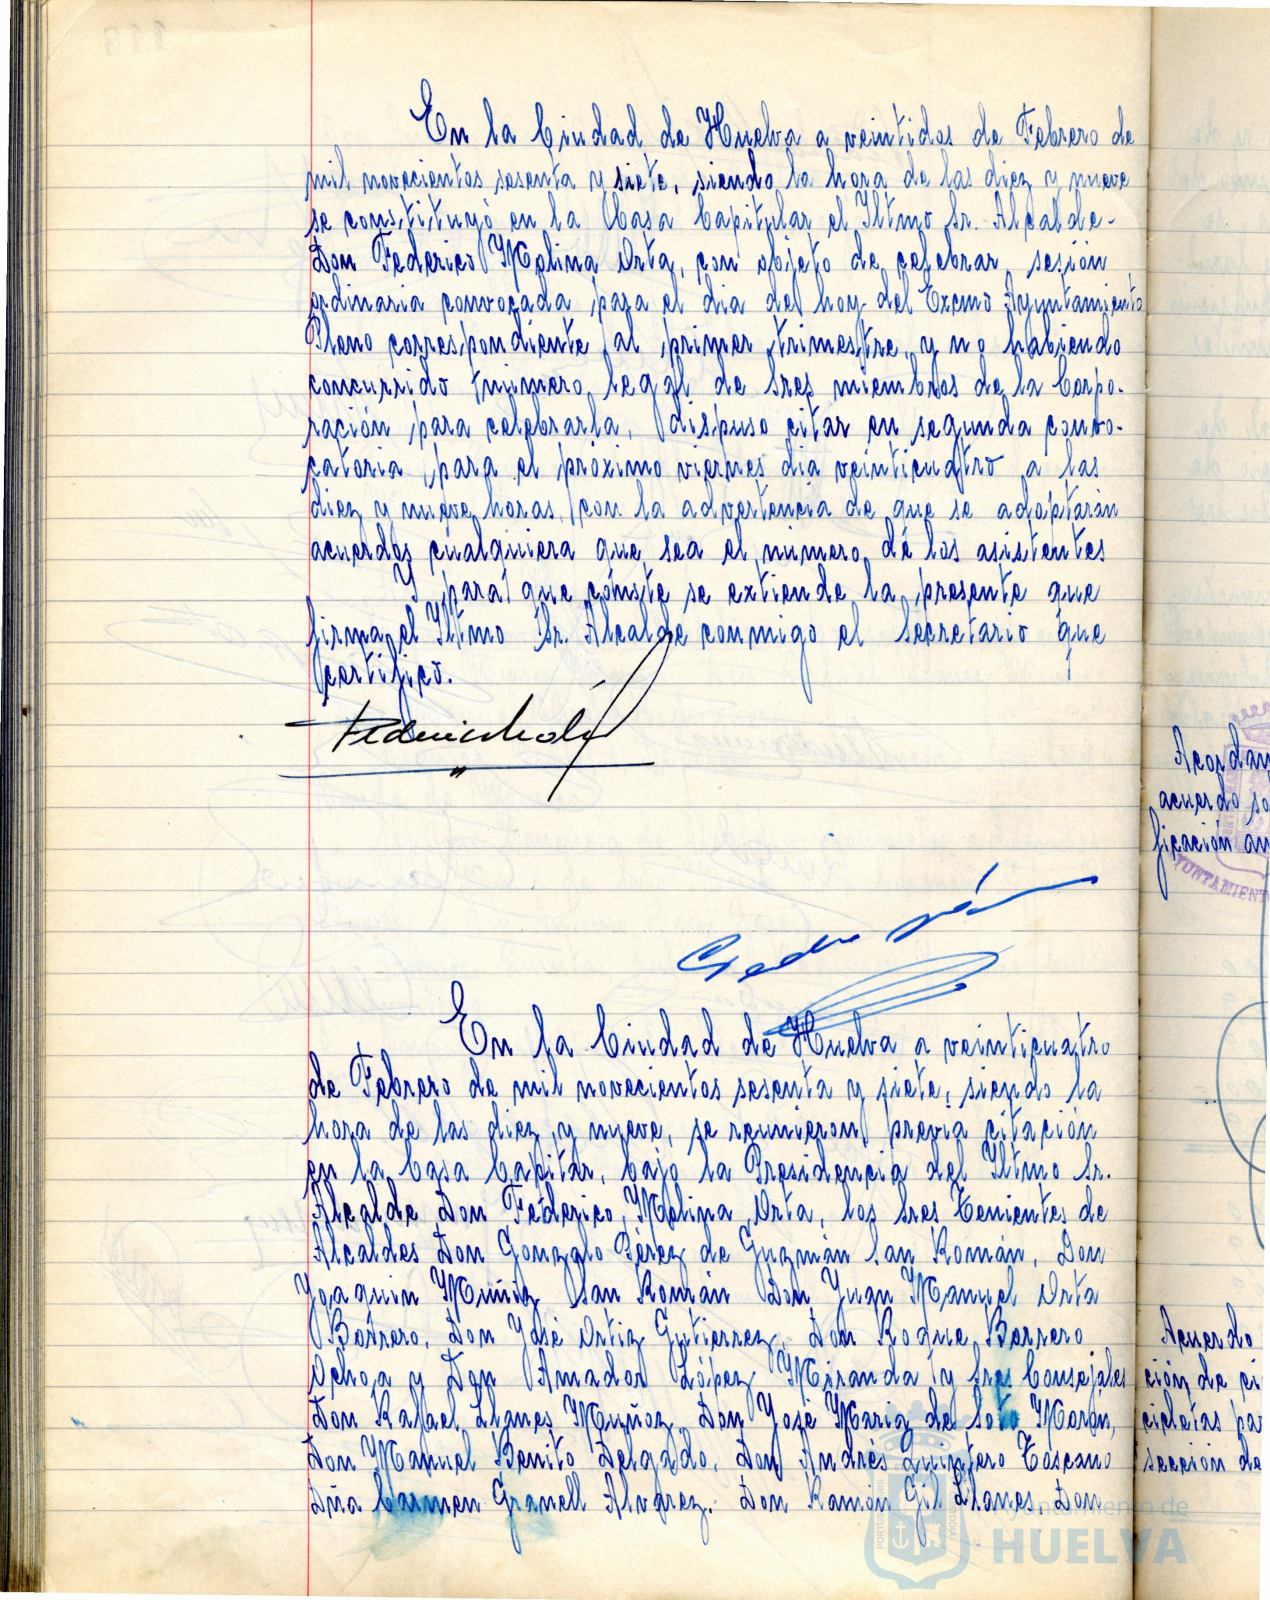 En la Ciudad de Huelva a veintidos de Febrero de
mil novecientos sesenta y siete, siendo la hora de las diez y nueve
se constituyó en la Casa Capitular el Iltmo Sr. Alcalde-
Don Federico Molina Orta, con objeto de celebrar sesión
ordinaria convocada para el dia de hoy del Excmo Ayuntamiento
Pleno correspondiente al primer trimestre, y no habiendo
concurrido número legal de Sres miembros de la Corpo-
ración para celebrarla, dispuso citar en segunda convo-
catoria para el próximo viernes dia veinticuatro a las
diez y nueve horas, con la advertencia de que se adoptarán
acuerdos cualquiera que sea el número de los asistentes
Y para que conste se extiende la presente que
firma el Iltmo Sr. Alcalde conmigo el Secretario que
certifico.
En la Ciudad de Huelva a veinticuatro
de Febrero de mil novecientos sesenta y siete, siendo la
hora de las diez y nueve, se reunieron previa citación
en la Casa Capitar, bajo la Presidencia del Iltmo Sr.
Alcalde Don Federico Molina Orta, los Sres Tenientes de
Alcaldes Don Gonzalo Pérez de Guzmán San Román, Don
Joaquin Muñiz San Román Don Juan Manuel Orta
Borrero, Don José Ortiz Gutierrez, Don Roque Barrero
Ochoa y Don Amador López Miranda y Sres Consejales
Don Rafael Llanes Muñoz, Don José Maria de Soto Morón,
Don Manuel Benito Delgado, Don Andrés Quintero Toscano
Dña Carmen Granell Alvarez. Don Ramón Gil Llanes Don
Acordan
acuerdo so
ficación an
YUNTAMIENT
Acuerdo
ción de ci
cicletas pa
sección de
Ayuntamiento de
HUELVA